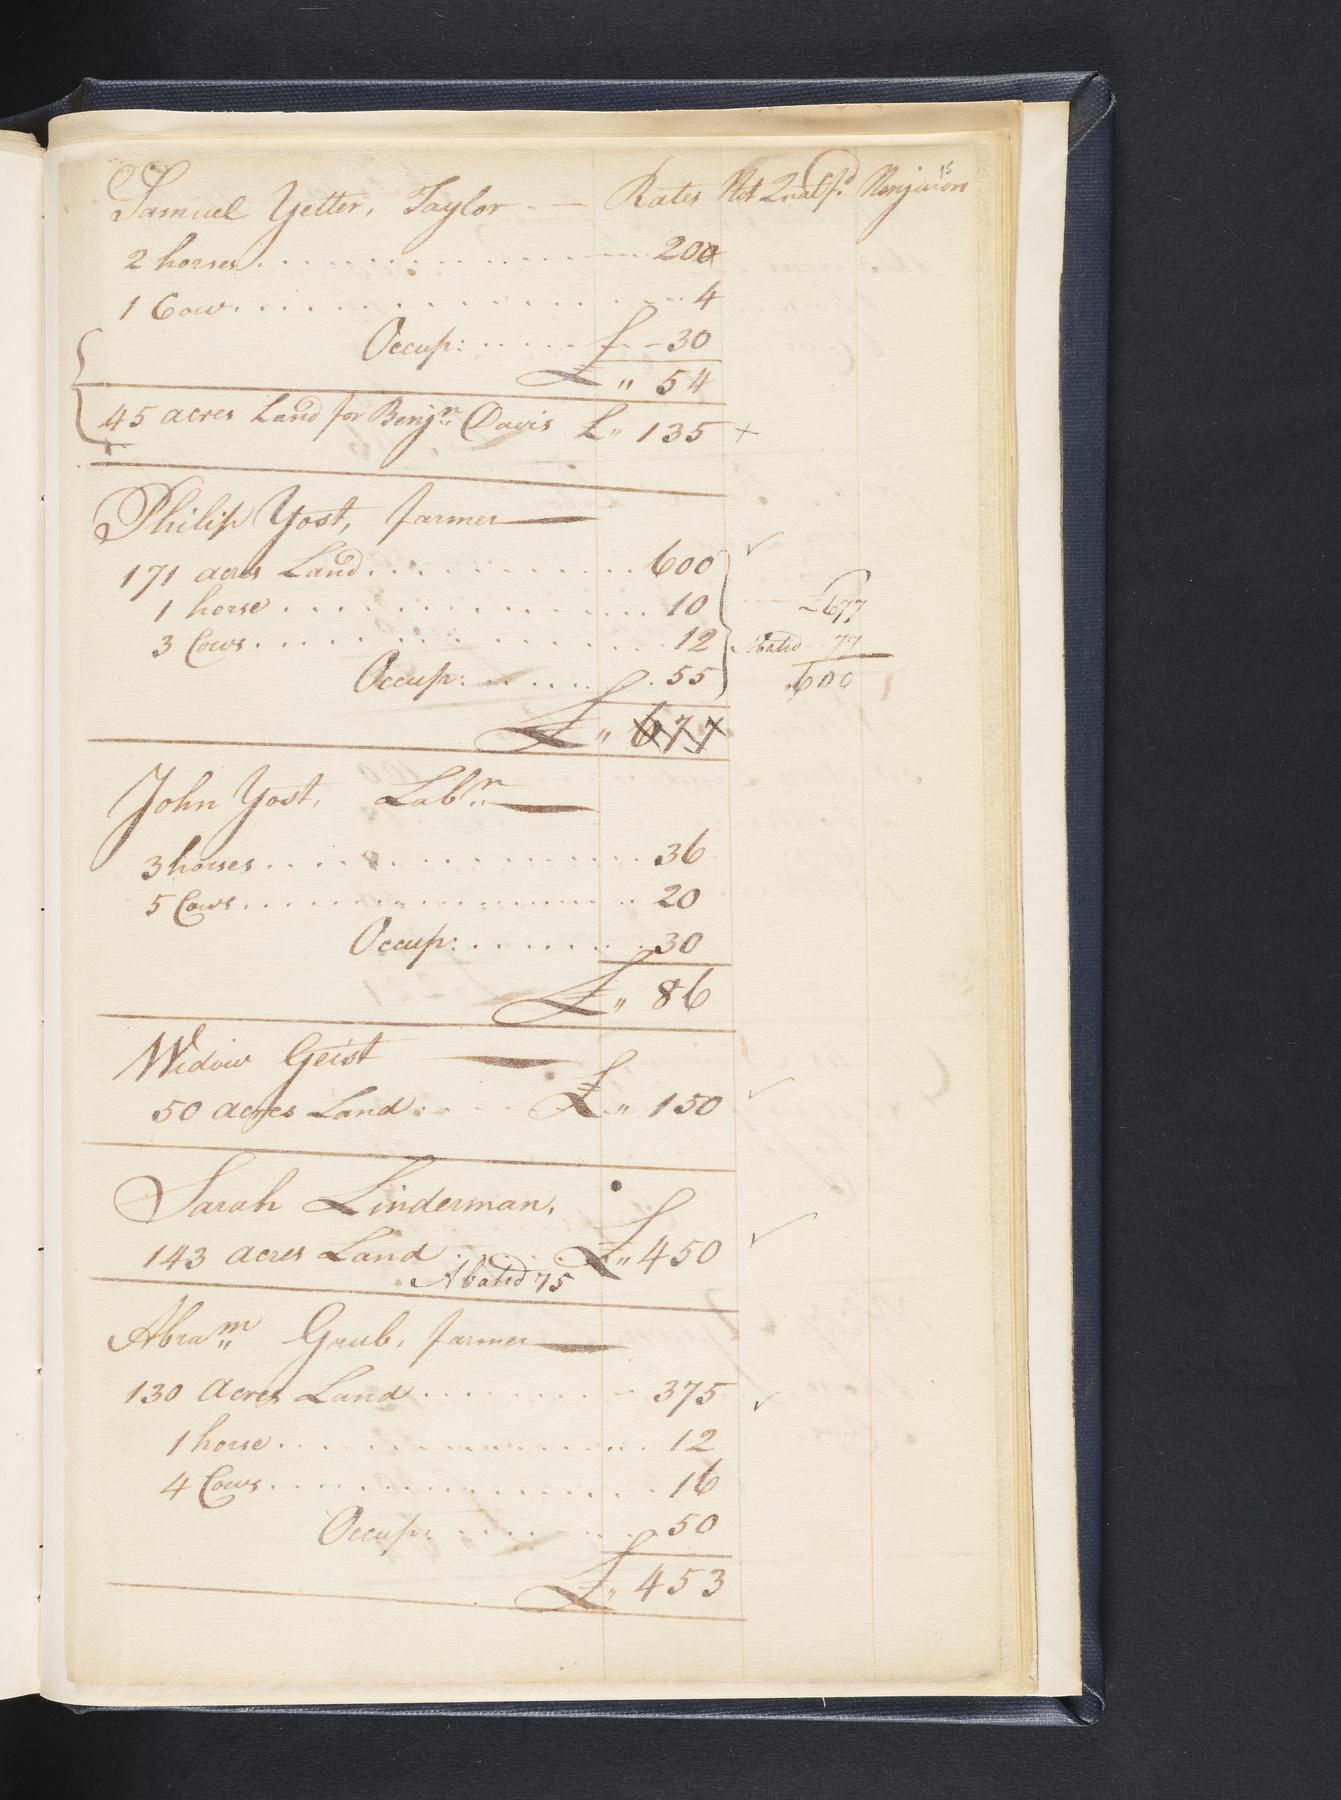 15
Samuel Yetter, Taylor - - Rates Not Qualfd. Nonjuron
2 horses . . . . . . 20
1 Cow . . . . . . 4
Occup: . . . . . 30
£ " 54
45 acres Land for Benjn. Davis £ " 135 +
Philip Yost, farmer
171 acres Land . . . . . . 600 ✓
1 horse . . . . . . 10 £677
3 Cows . . . . . . 12 Abated 77
Occup: . . . . . 55 600
£ " 677
John Yost, Labr.
3 horses . . . . . . 36
5 Cows . . . . . . 20
Occup: . . . . . . 30
£ " 86
Widow Geist
50 acres Land . . . £ " 150 ✓
Sarah Linderman,
143 acres Land . . . £ " 450 ✓
Abated 75
Abram Grub, farmer
130 Acres Land . . . . . . 375 ✓
1 horse . . . . . . 12
4 Cows . . . . . . 16
Occup: . . . . . 50
£ " 453